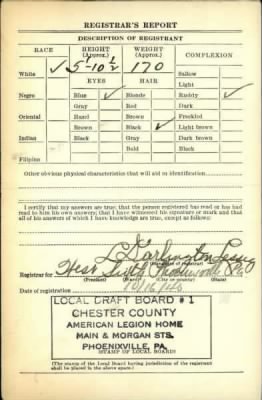 REGISTRAR'S REPORT
DESCRIPTION OF REGISTRANT
RACE HEIGHT (Approx.) WEIGHT (Approx.) COMPLEXION
White ✓ 5'-10 1/2 170 Sallow
Light
EYES HAIR
Negro Blue ✓ Blonde Ruddy ✓
Gray Red Dark
Oriental Hazel Brown Freckled
Brown Black ✓ Light brown
Indian Black Gray Dark brown
Bald Black
Filipino
Other obvious physical characteristics that will aid in identification
I certify that my answers are true; that the person registered has read or has had
read to him his own answers; that I have witnessed his signature or mark and that
all of his answers of which I have knowledge are true, except as follows:
Registrar for West Sixth Phoenixville Pa.
(Precinct) (Ward) (City or county) (State)
Date of registration 10/16/40
LOCAL DRAFT BOARD #1
CHESTER COUNTY
AMERICAN LEGION HOME
MAIN & MORGAN STS.
PHOENIXVILLE, PA.
(STAMP OF LOCAL BOARD)
(The stamp of the Local Board having jurisdiction of the registrant
shall be placed in the above space.)